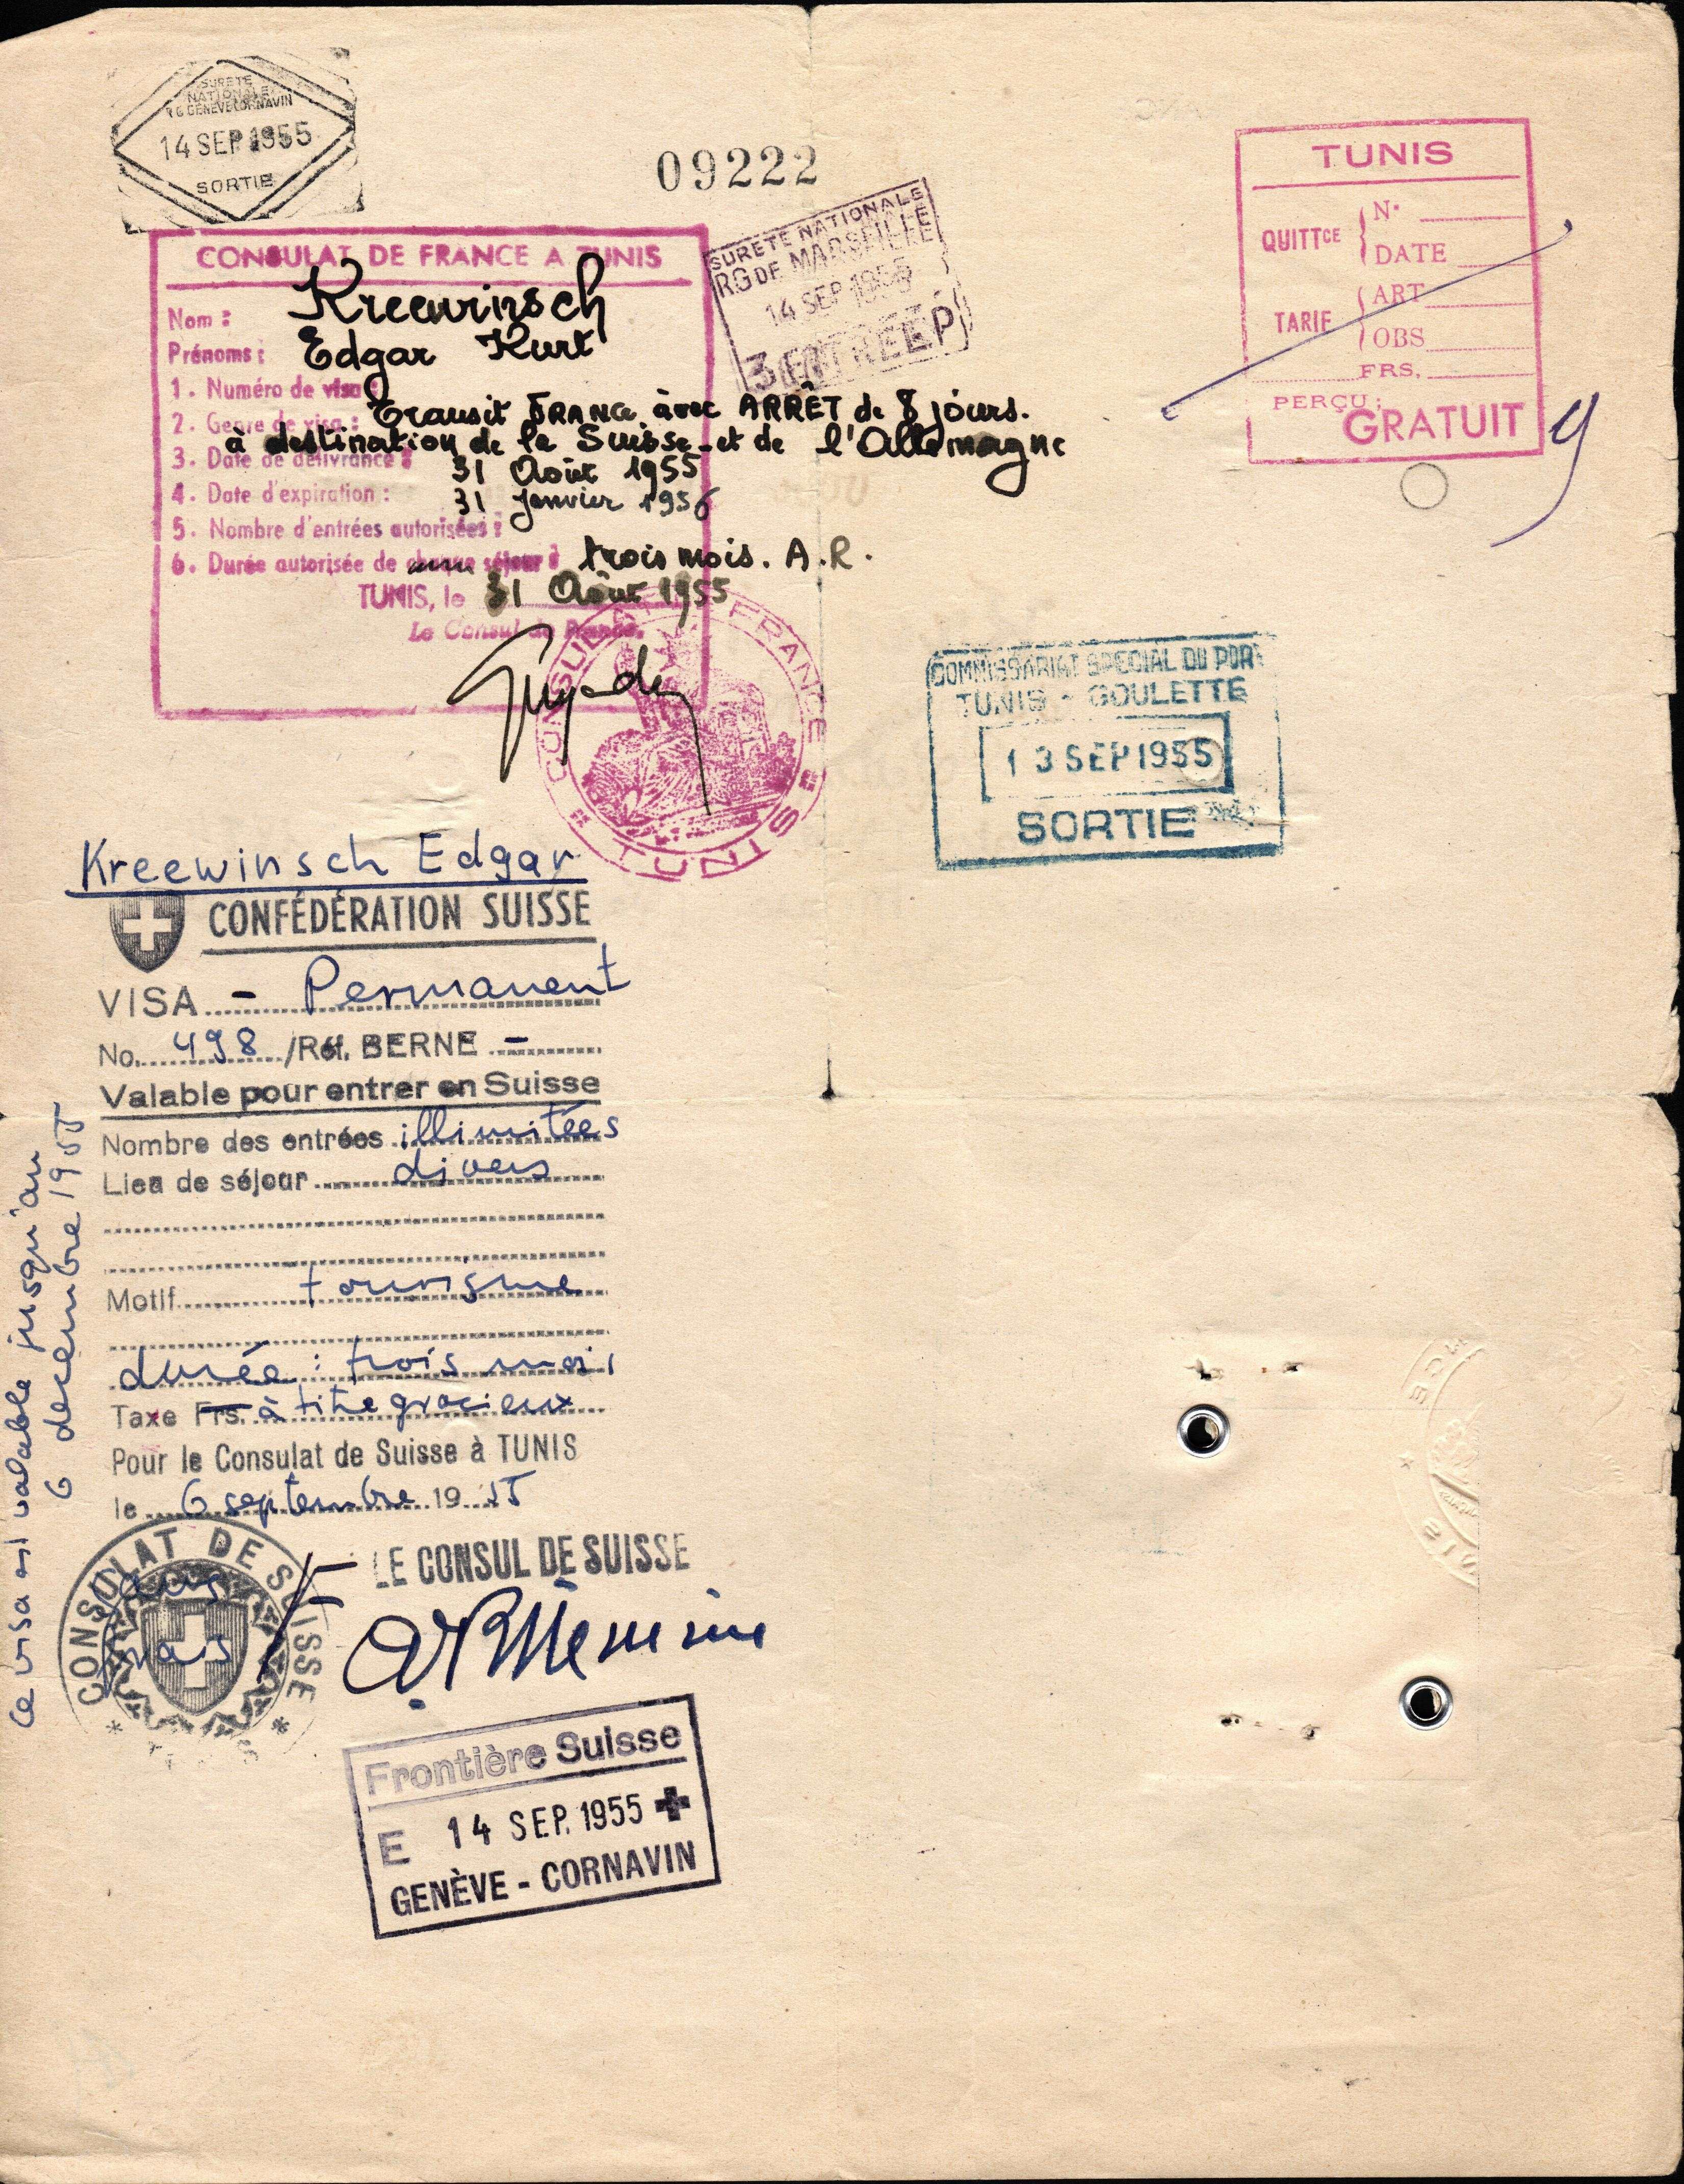 SURETE
NATIONALE
GENEVE CORNAVIN
14 SEP 1955
SORTIE
09222
SURETE NATIONALE
RG DE MARSEILLE
14 SEP 1955
3 ENTREE P
TUNIS
QUITTCE
N°
DATE
TARIF
ART
OBS
FRS.
PERÇU:
GRATUIT
CONSULAT DE FRANCE A TUNIS
Nom: Kreewinsch
Prénoms: Edgar Kurt
1. Numéro de visa:
2. Genre de visa: Transit FRANCE avec ARRÊT de 8 jours.
à destination de la Suisse et de l'Allemagne
3. Date de délivrance: 31 Août 1955
4. Date d'expiration: 31 Janvier 1956
5. Nombre d'entrées autorisées:
6. Durée autorisée de chaque séjour: trois mois. A.R.
TUNIS, le 31 Août 1955
Le Consul de France.
CONSULAT DE FRANCE
TUNIS
COMMISSARIAT SPECIAL DU PORT
TUNIS - GOULETTE
13 SEP 1955
SORTIE
Kreewinsch Edgar
CONFÉDÉRATION SUISSE
VISA - Permanent
No. 498 /Réf. BERNE -
Valable pour entrer en Suisse
Nombre des entrées illimitées
Lieu de séjour divers
Motif tourisme
durée: trois mois
Taxe Frs. à titre gracieux
Pour le Consulat de Suisse à TUNIS
le 6 septembre 1955
Ce visa est valable jusqu'au
6 décembre 1955
LE CONSUL DE SUISSE
CONSULAT DE SUISSE
sans
frais
Frontière Suisse
E 14 SEP. 1955
GENÈVE - CORNAVIN